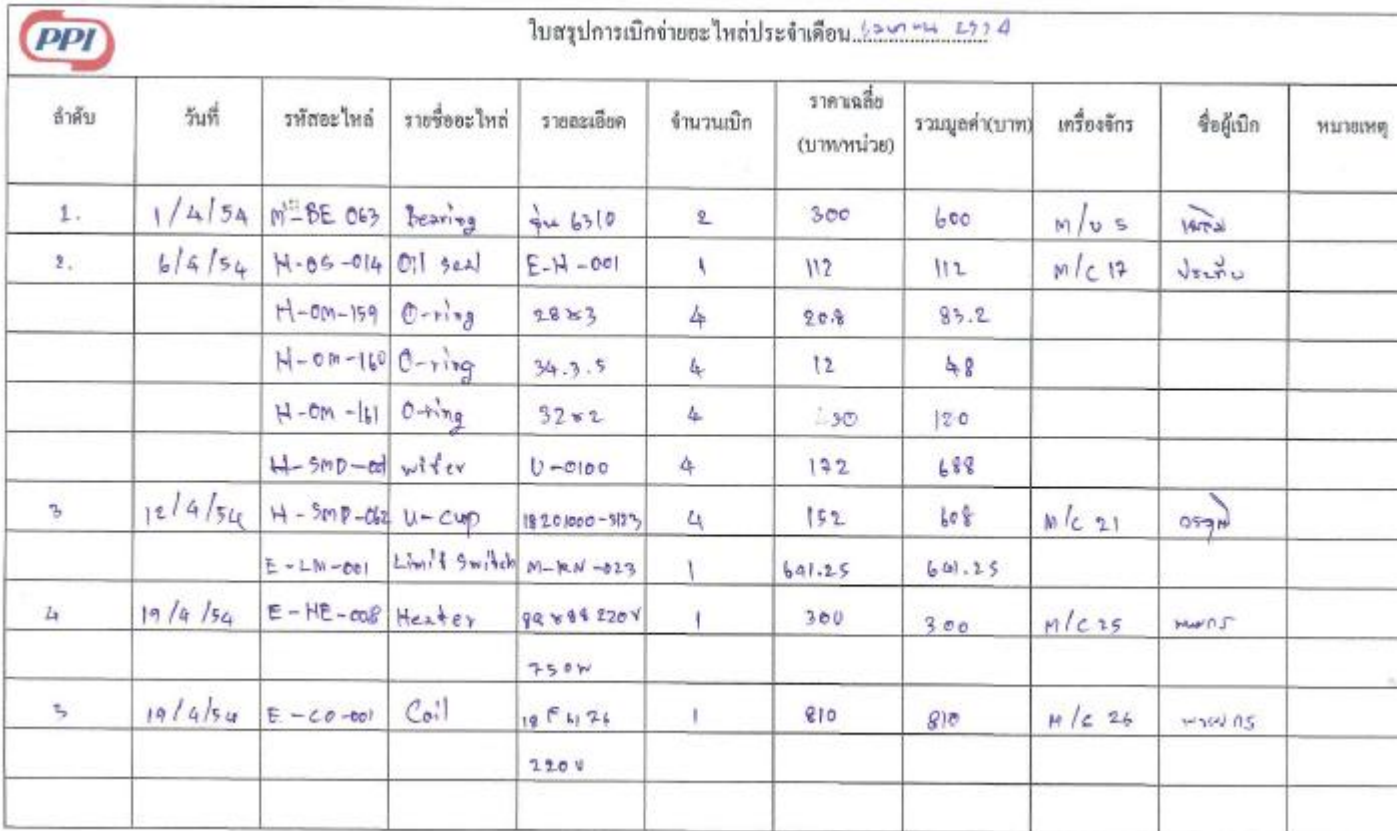 PPI
ใบสรุปการเบิกจ่ายอะไหล่ประจำเดือน เมษายน 2554
ลำดับ วันที่ รหัสอะไหล่ รายชื่ออะไหล่ รายละเอียด จำนวนเบิก ราคาเฉลี่ย (บาท/หน่วย) รวมมูลค่า(บาท) เครื่องจักร ชื่อผู้เบิก หมายเหตุ
1. 1/4/54 M-BE 063 Bearing รุ่น 6310 2 300 600 M/C 5
2. 6/4/54 H-OS-014 Oil seal E-H-001 1 112 112 M/C 17 ประทีป
H-OM-159 O-ring 28x3 4 20.8 83.2
H-OM-160 O-ring 34.3.5 4 12 48
H-OM-161 O-ring 32x2 4 30 120
wifer U-0100 4 172 688
3 12/4/54 H-SMP-062 U-cup 4 152 608 M/C 21
E-LM-001 Limit Switch M-RN-023 1 641.25 641.25
4 19/4/54 E-HE-008 Heater 220V 1 300 300 M/C 25
750W
5 19/4/54 E-CO-001 Coil 1 810 810 M/C 26
220V